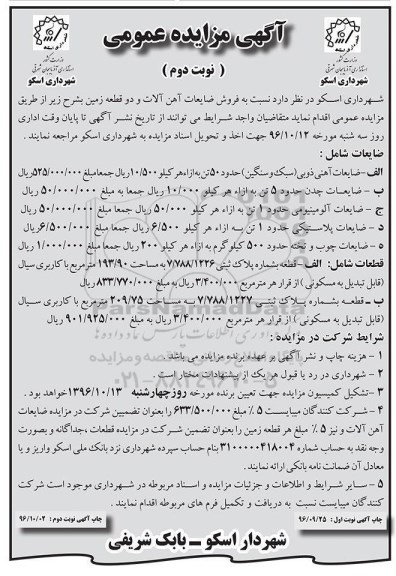 آگهی مزایده عمومی
( نوبت دوم )
وزارت کشور
استانداری آذربایجان شرقی
شهرداری اسکو
وزارت کشور
استانداری آذربایجان شرقی
شهرداری اسکو
شهرداری اسکو در نظر دارد نسبت به فروش ضایعات آهن آلات و دو قطعه زمین بشرح زیر از طریق
مزایده عمومی اقدام نماید متقاضیان واجد شرایط می توانند از تاریخ نشر آگهی تا پایان وقت اداری
روز سه شنبه مورخه ۹۶/۱۰/۱۲ جهت اخذ و تحویل اسناد مزایده به شهرداری اسکو مراجعه نمایند .
ضایعات شامل :
الف - ضایعات آهنی ذوبی (سبک و سنگین) حدود ۵۰ تن به ازاء هر کیلو ۱۰/۵۰۰ ریال جمعا مبلغ ۵۲۵/۰۰۰/۰۰۰ ریال
ب - ضایعات چدن حدود ۵ تن به ازاء هر کیلو ۱۰/۰۰۰ ریال جمعا به مبلغ ۵۰/۰۰۰/۰۰۰ ریال
ج - ضایعات آلومینیومی حدود ۱ تن به ازاء هر کیلو ۵۰/۰۰۰ ریال جمعا مبلغ ۵۰/۰۰۰/۰۰۰ ریال
د - ضایعات پلاستیکی حدود ۱ تن به ازاء هر کیلو ۶/۵۰۰ ریال جمعا مبلغ ۶/۵۰۰/۰۰۰ ریال
ه - ضایعات چوب و تخته حدود ۵۰۰ کیلو گرم به ازاء هر کیلو ۲۰۰ ریال جمعا مبلغ ۱/۰۰۰/۰۰۰ ریال
قطعات شامل: الف - قطعه بشماره پلاک ثبتی ۷/۷۸۸/۱۲۲۶ به مساحت ۱۹۳/۹۰ مترمربع با کاربری سیال
(قابل تبدیل به مسکونی ) از قرار هر مترمربع ۳/۴۰۰/۰۰۰ ریال به مبلغ ۸۳۳/۷۷۰/۰۰۰ ریال
ب - قطعه بشماره پلاک ثبتی ۷/۷۸۸/۱۲۲۷ به مساحت ۲۰۹/۷۵ مترمربع با کاربری سیال
(قابل تبدیل به مسکونی ) از قرار هر مترمربع ۳/۴۰۰/۰۰۰ ریال به مبلغ ۹۰۱/۹۲۵/۰۰۰ ریال
شرایط شرکت در مزایده :
۱ - هزینه چاپ و نشر آگهی بر عهده برنده مزایده می باشد .
۲ - شهرداری در رد یا قبول هر یک از پیشنهادات مختار است .
۳ - تشکیل کمیسیون مزایده جهت تعیین برنده مورخه روز چهارشنبه ۱۳۹۶/۱۰/۱۳ خواهد بود .
۴ - شرکت کنندگان میبایست ۵ ٪ مبلغ ۶۳۳/۵۰۰/۰۰۰ را بعنوان تضمین شرکت در مزایده ضایعات
آهن آلات و نیز ۵ ٪ مبلغ هر قطعه زمین را بعنوان تضمین شرکت در مزایده قطعات ،جداگانه و بصورت
وجه نقد به حساب شماره ۳۱۰۰۰۰۰۴۱۸۰۰۴ بنام حساب سپرده شهرداری نزد بانک ملی اسکو واریز و یا
معادل آن ضمانت نامه بانکی ارائه نمایند .
۵ - سایر شرایط و اطلاعات و جزئیات مزایده و اسناد مربوطه در شهرداری موجود است شرکت
کنندگان میبایست نسبت به دریافت و تکمیل فرم های مربوطه اقدام نمایند .
چاپ آگهی نوبت اول: ۹۶/۰۹/۲۵
چاپ آگهی نوبت دوم : ۹۶/۱۰/۰۲
شهردار اسکو - بابک شریفی
ParsNamadData
۰۲۱-۸۸۳۴۹۶۷۰-۵